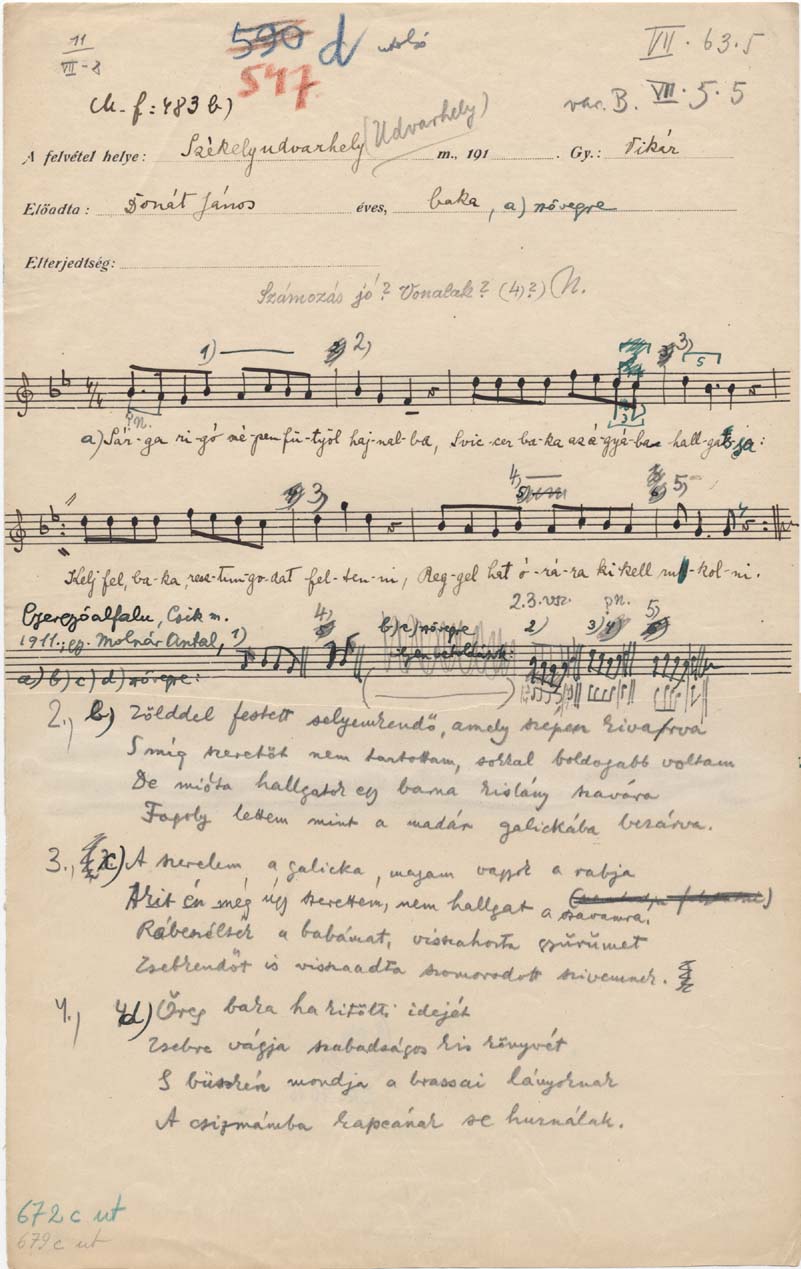 11
VII-8
590 d utolsó
547.
VII. 63.5
M. f: 483 b)
var. B. VII. 5.5
A felvétel helye: Székelyudvarhely (Udvarhely) m., 191 . Gy.: Vikár
Előadta: Donát János éves, baka, a) szövegre
Elterjedtség:
Számozás jó? Vonalak? (4)?) N.
1) 2) 3) 5
3
pn.
a) Sár-ga ri-gó szé-pen fü-työl haj-nal-ba, Svic-cer ba-ka az á-gyá-ba hall-gat-ja:
3) 4) 5)
Kelj fel, ba-ka, resz-tun-go-dat fel-ten-ni, Reg-gel hat ó-rá-ra ki kell ru-kol-ni.
Gyergyóalfalu, Csik m. 2.3. vsz. pn.
1911.; gy. Molnár Antal, 1) 4) b) c) szövegre 2) 3) 5)
a) b) c) d) szövegre:
2., b) Zölddel festett selyemkendő, amely szépen kivarrva
S míg szeretőt nem tartottam, sokkal boldogabb voltam
De mióta hallgatok egy barna kislány szavára
Fogoly lettem mint a madár galickába bezárva.
3., c) A szerelem a galicka, magam vagyok a rabja
Akit én még úgy szerettem, nem hallgat a szavamra.
Rábeszélték a babámat, visszahozta gyűrűmet
Zsebkendőt is visszaadta szomorodott szivemnek.
4., d) Öreg baka ha kitölti idejét
Zsebre vágja szabadságos kis könyvét
S büszkén mondja a brassai lányoknak
A csizmámba kapcának se husználak.
672 c ut
679 c ut